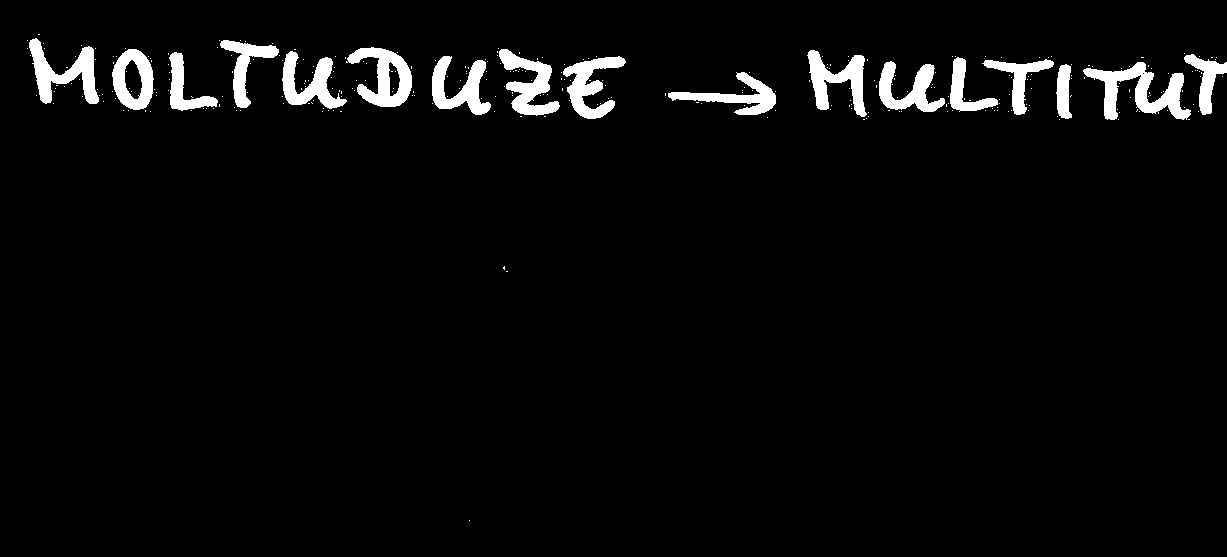 MOLTUDUZE → MULTITUT